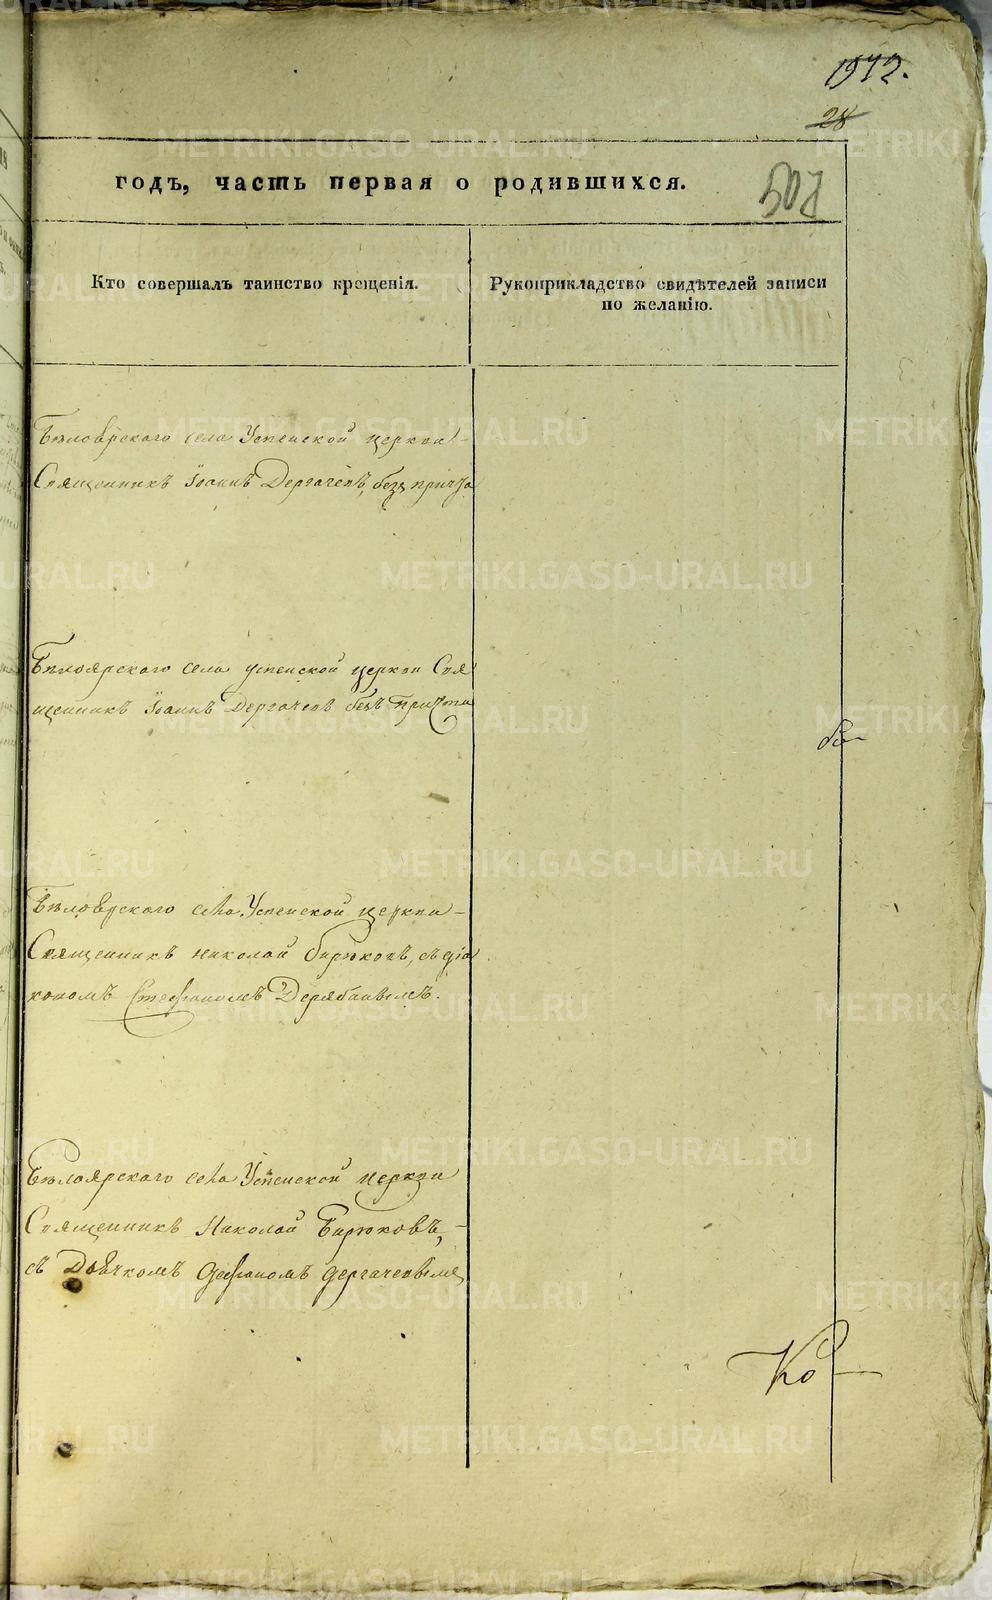 1942.
28
годъ, часть первая о родившихся.
508
Кто совершалъ таинство крещенія.
Рукоприкладство свидѣтелей записи
по желанію.
Бѣлоярскаго села Успенской церкви
Священникъ Іоаннъ Дергачевъ, безъ причта
Бѣлоярскаго села Успенской церкви Свя
щенникъ Іоаннъ Дергачевъ безъ причта
Бѣлоярскаго села Успенской церкви
Священникъ Николай Бирюковъ, съ діа
кономъ Стефаномъ Дерябинымъ.
Бѣлоярскаго села Успенской церкви
Священникъ Николай Бирюковъ,
съ Дьячкомъ Стефаномъ Дергачевымъ
Ко
METRIKI.GASO-URAL.RU